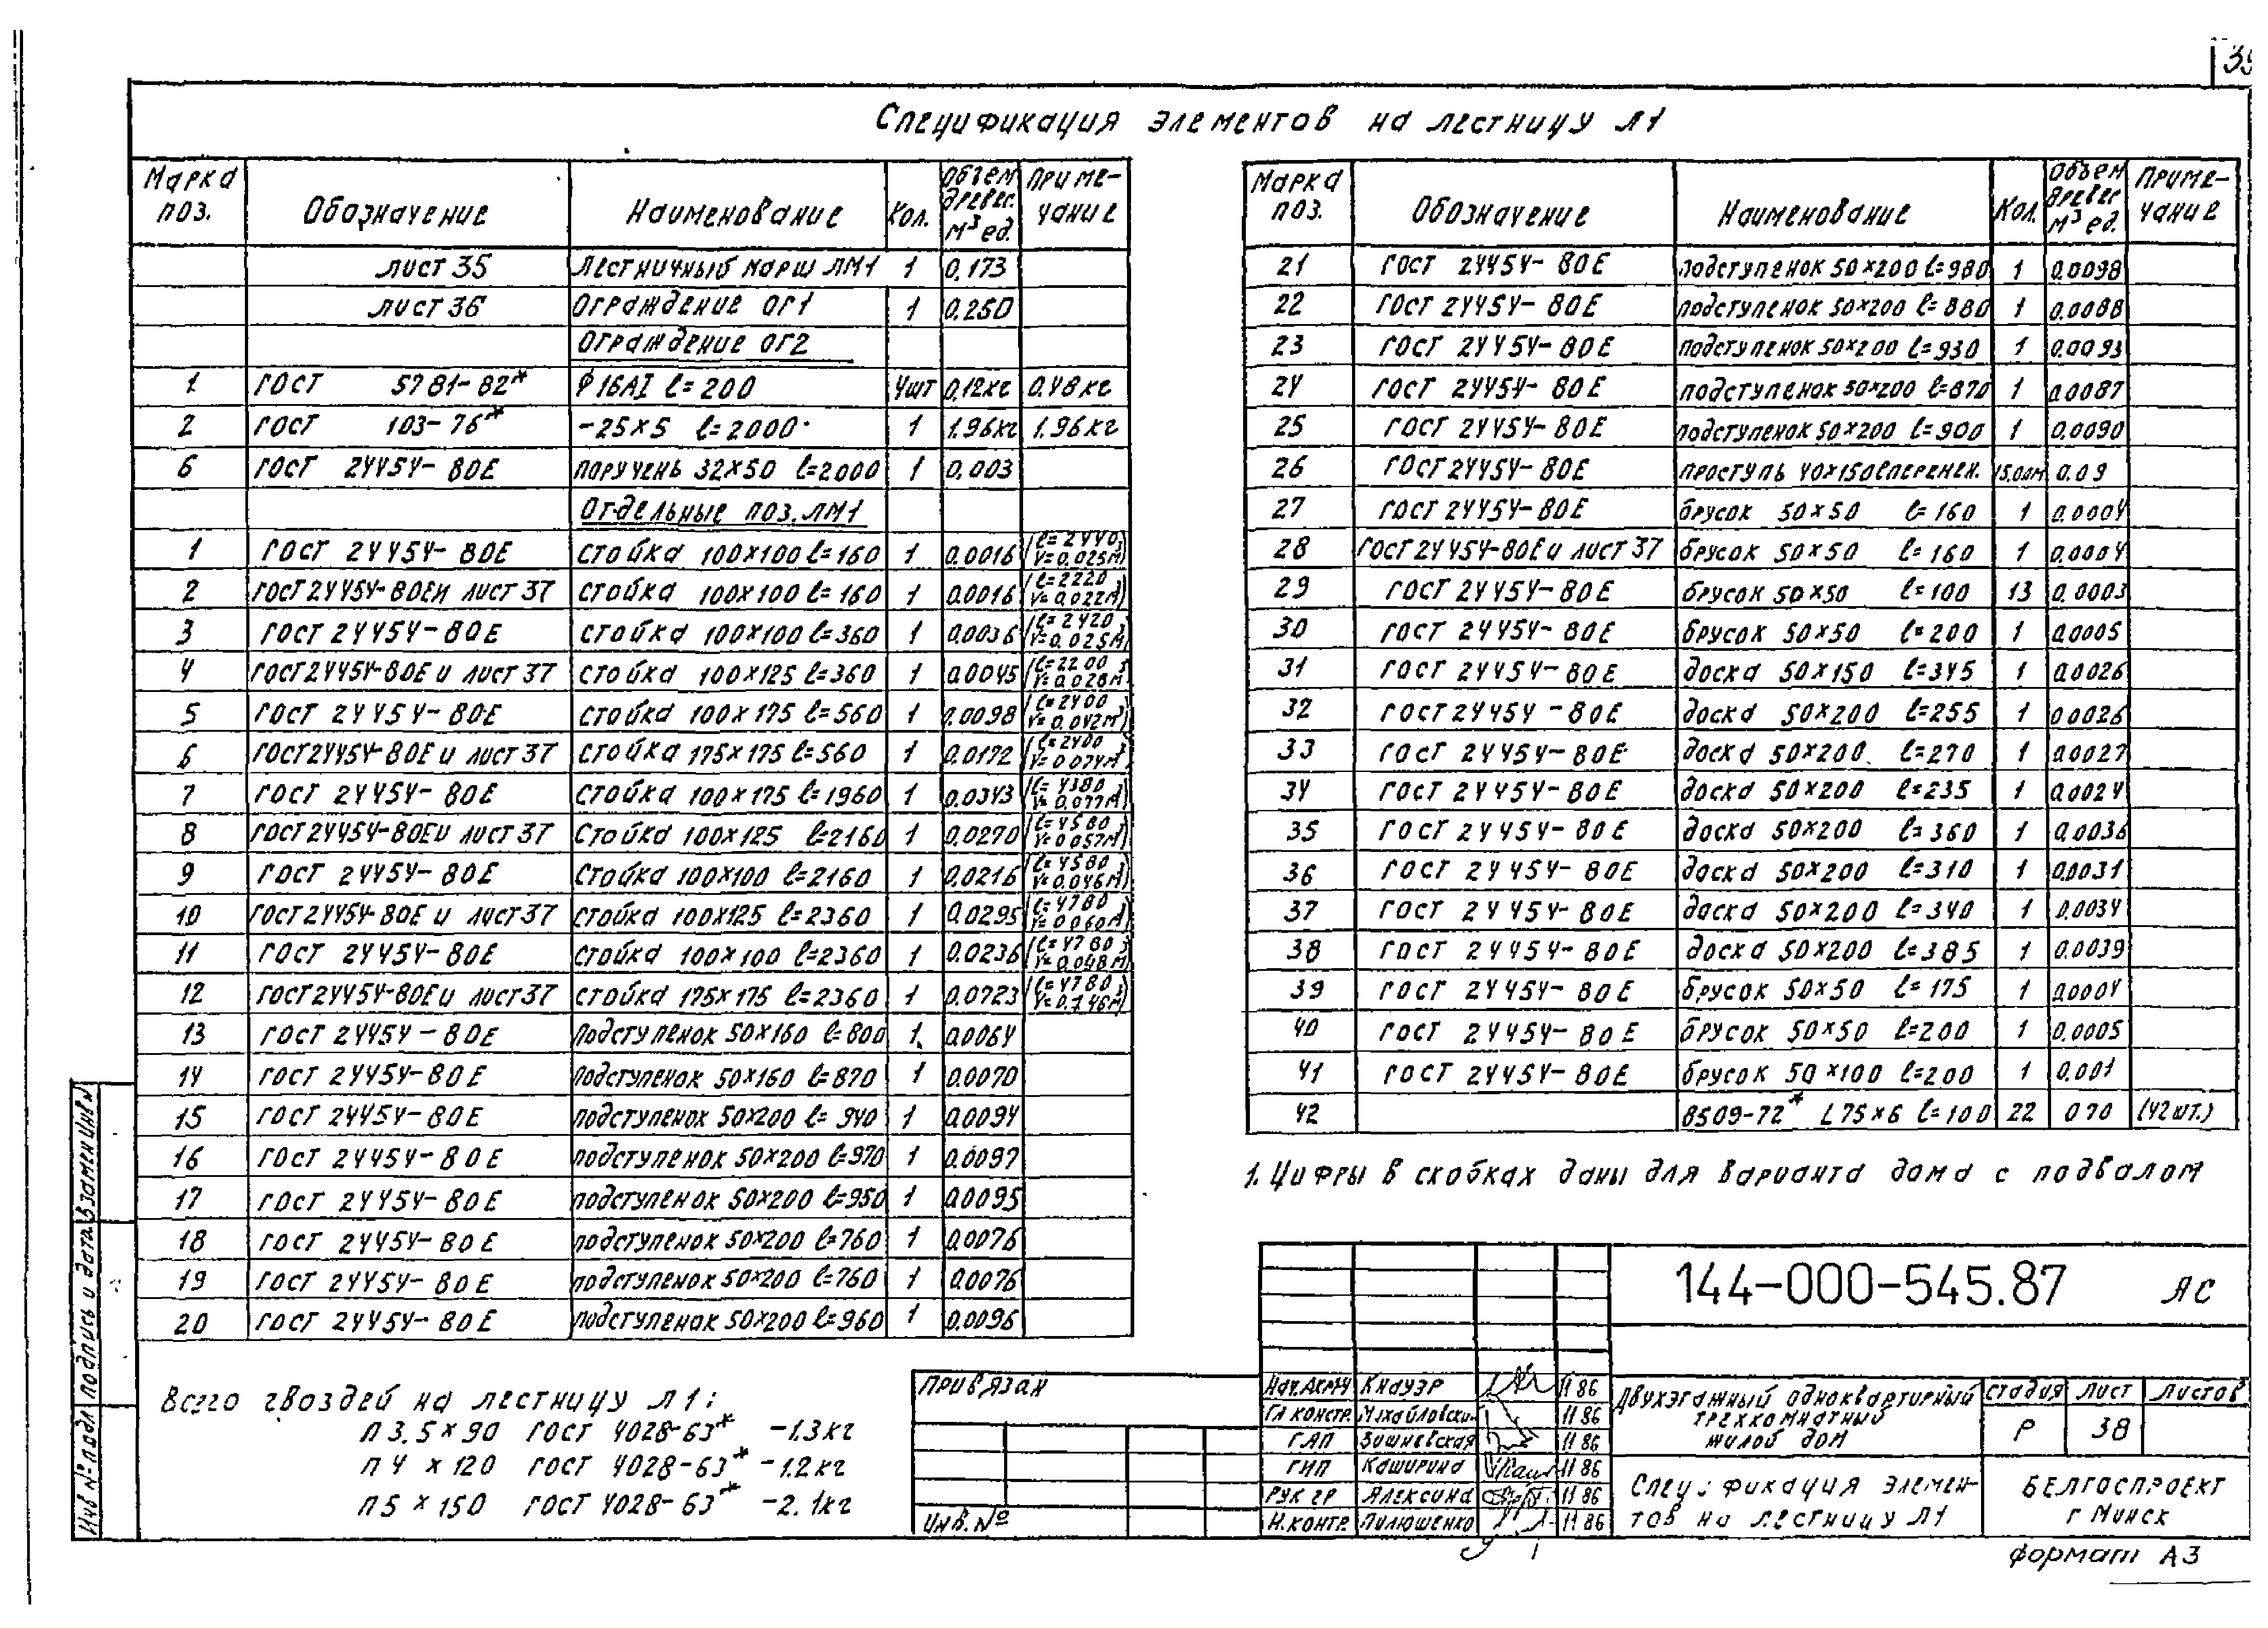 Спецификация элементов на лестницу Л1
Марка поз. Обозначение Наименование Кол. Объем древес. м³ ед. Примечание
лист 35 Лестничный марш ЛМ1 1 0.173
лист 36 Ограждение ОГ1 1 0.250
Ограждение ОГ2
1 ГОСТ 5781-82* ϕ16АI ℓ=200 4шт 0,12кг 0.48кг
2 ГОСТ 103-76* -25×5 ℓ=2000 1 1.96кг 1.96кг
6 ГОСТ 24454-80Е поручень 32×50 ℓ=2000 1 0.003
Отдельные поз. ЛМ1
1 ГОСТ 24454-80Е стойка 100×100 ℓ=160 1 0.0016 (ℓ=2440; V=0.025м)
2 ГОСТ 24454-80Еи лист 37 стойка 100×100 ℓ=160 1 0.0016 (ℓ=2220 V=0.022м)
3 ГОСТ 24454-80Е стойка 100×100 ℓ=360 1 0.0036 (ℓ=2420; V=0.025м)
4 ГОСТ 24454-80Е и лист 37 стойка 100×125 ℓ=360 1 0.0045 (ℓ=2200; V=0.028м)
5 ГОСТ 24454-80Е стойка 100×175 ℓ=560 1 0.0098 (ℓ=2400 V=0.042м)
6 ГОСТ 24454-80Е и лист 37 стойка 175×175 ℓ=560 1 0.0172 (ℓ=2400; V=0.074м)
7 ГОСТ 24454-80Е стойка 100×175 ℓ=1960 1 0.0343 (ℓ=4380 V=0.077м)
8 ГОСТ 24454-80Еи лист 37 стойка 100×125 ℓ=2160 1 0.0270 (ℓ=4580 V=0.057м)
9 ГОСТ 24454-80Е стойка 100×100 ℓ=2160 1 0.0216 (ℓ=4580; V=0.046м)
10 ГОСТ 24454-80Е и лист 37 стойка 100×125 ℓ=2360 1 0.0295 (ℓ=4780 V=0.060м)
11 ГОСТ 24454-80Е стойка 100×100 ℓ=2360 1 0.0236 (ℓ=4780; V=0.048м)
12 ГОСТ 24454-80Еи лист 37 стойка 175×175 ℓ=2360 1 0.0723 (ℓ=4780; V=0.146м)
13 ГОСТ 24454-80Е подступенок 50×160 ℓ=800 1 0.0064
14 ГОСТ 24454-80Е подступенок 50×160 ℓ=870 1 0.0070
15 ГОСТ 24454-80Е подступенок 50×200 ℓ=940 1 0.0094
16 ГОСТ 24454-80Е подступенок 50×200 ℓ=970 1 0.0097
17 ГОСТ 24454-80Е подступенок 50×200 ℓ=950 1 0.0095
18 ГОСТ 24454-80Е подступенок 50×200 ℓ=760 1 0.0076
19 ГОСТ 24454-80Е подступенок 50×200 ℓ=760 1 0.0076
20 ГОСТ 24454-80Е подступенок 50×200 ℓ=960 1 0.0096
Всего гвоздей на лестницу Л1:
П 3.5×90 ГОСТ 4028-63* -1.3кг
П 4 × 120 ГОСТ 4028-63* -1.2кг
П5 × 150 ГОСТ 4028-63* -2.1кг
Марка поз. Обозначение Наименование Кол. Объем древес. м³ ед. Примечание
21 ГОСТ 24454-80Е подступенок 50×200 ℓ=980 1 0.0098
22 ГОСТ 24454-80Е подступенок 50×200 ℓ=880 1 0.0088
23 ГОСТ 24454-80Е подступенок 50×200 ℓ=930 1 0.0093
24 ГОСТ 24454-80Е подступенок 50×200 ℓ=870 1 0.0087
25 ГОСТ 24454-80Е подступенок 50×200 ℓ=900 1 0.0090
26 ГОСТ 24454-80Е проступь 40×150 ℓперемен. 0.09
27 ГОСТ 24454-80Е брусок 50×50 ℓ=160 1 0.0004
28 ГОСТ 24454-80Е и лист 37 брусок 50×50 ℓ=160 1 0.0004
29 ГОСТ 24454-80Е брусок 50×50 ℓ=100 13 0.0003
30 ГОСТ 24454-80Е брусок 50×50 ℓ=200 1 0.0005
31 ГОСТ 24454-80Е доска 50×150 ℓ=345 1 0.0026
32 ГОСТ 24454-80Е доска 50×200 ℓ=255 1 0.0026
33 ГОСТ 24454-80Е доска 50×200 ℓ=270 1 0.0027
34 ГОСТ 24454-80Е доска 50×200 ℓ=235 1 0.0024
35 ГОСТ 24454-80Е доска 50×200 ℓ=360 1 0.0036
36 ГОСТ 24454-80Е доска 50×200 ℓ=310 1 0.0031
37 ГОСТ 24454-80Е доска 50×200 ℓ=340 1 0.0034
38 ГОСТ 24454-80Е доска 50×200 ℓ=385 1 0.0039
39 ГОСТ 24454-80Е брусок 50×50 ℓ=175 1 0.0004
40 ГОСТ 24454-80Е брусок 50×50 ℓ=200 1 0.0005
41 ГОСТ 24454-80Е брусок 50×100 ℓ=200 1 0.001
42 8509-72* L75×6 ℓ=100 22 0 70 (42шт.)
1. Цифры в скобках даны для варианта дома с подвалом
144-000-545.87 АС
Привязан
Инв. №
Нач.АСМ4 Кнауэр 11 86
Гл констр. Михайловски 11 86
ГАП Вишневская 11 86
ГИП Каширина 11 86
Рук гр Алексина 11 86
Н.контр. Пилюшенко 11 86
Двухэтажный одноквартирный трехкомнатный жилой дом
стадия лист листов
Р 38
Спецификация элементов на лестницу Л1
БЕЛГОСПРОЕКТ
г Минск
формат А3
Инв № подл подпись и дата Взамен Инв №